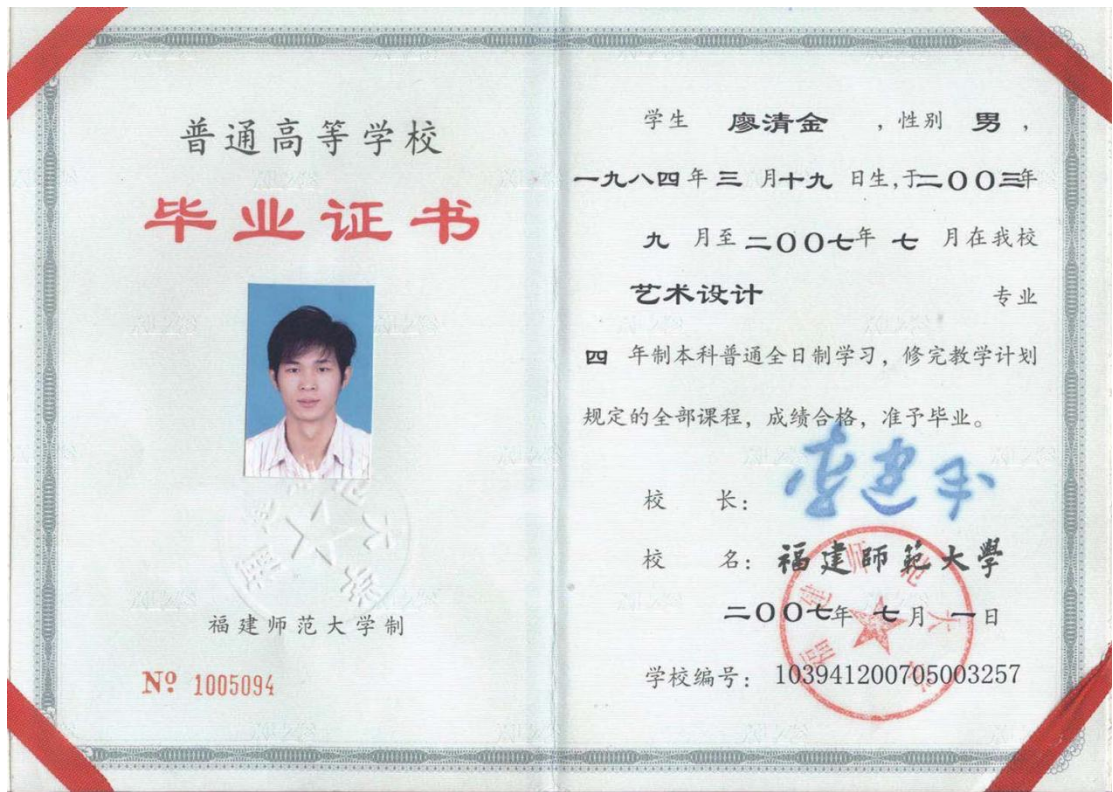 普通高等学校
毕业证书
福建师范大学制
№ 1005094
学生 廖清金 ，性别 男 ，
一九八四年 三 月十九 日生,于二００三年
九 月至 二００七年 七 月在我校
艺术设计 专业
四 年制本科普通全日制学习，修完教学计划
规定的全部课程，成绩合格，准予毕业。
校 长：
校 名：福建師範大學
二００七年 七 月 一日
学校编号：103941200705003257
福建师范大学